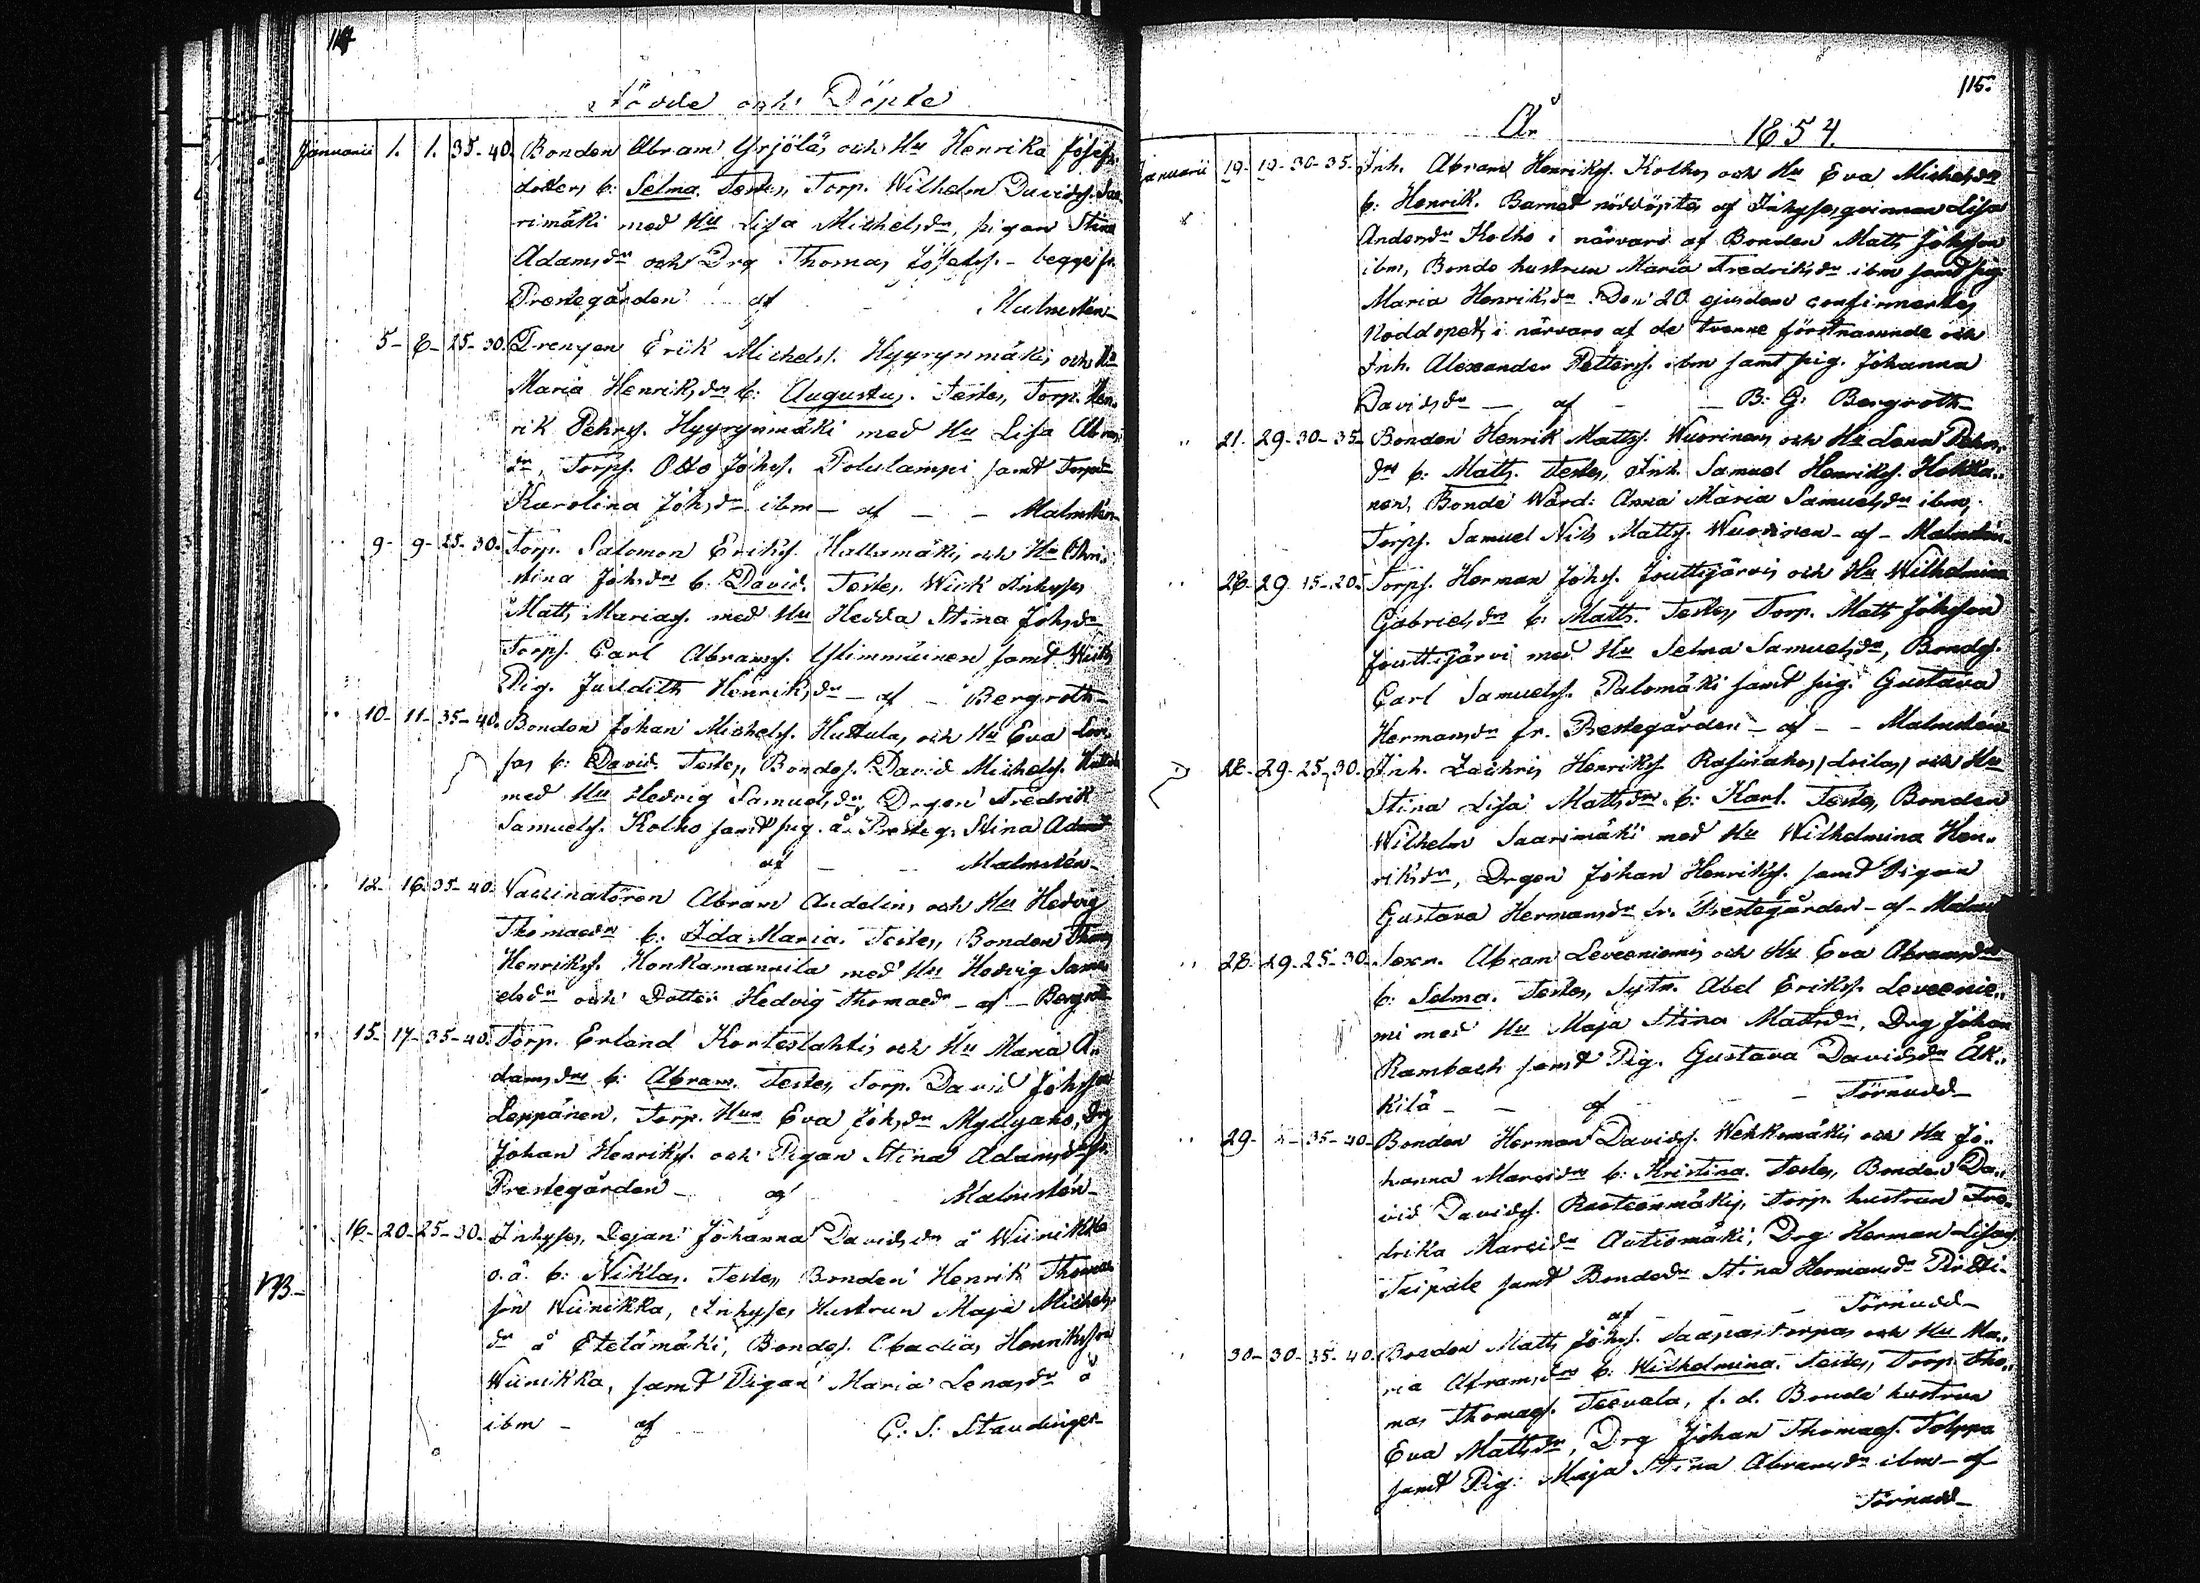 114
Födde och Döpte
Januarii 1. 1. 35-40. Bonden Abram Yrjölä, och Hu Henrika Josefs
dotters b: Selma. Testes, Torp. Wilhelm Davids. Saa
rimäki med Hu Lisa Michelsdr, pigan Stina
Adamsdr och Drg Thomas Josefss. - begge fr.
Prestegården af Malmstén
5- 6- 25-30. Drengen Erik Michelss. Hyyrynmäkis och Hu
Maria Henriksdrs b: Augustus. Testes, Torp. Hen-
rik Pehrss. Hyyrynmäki med Hu Lisa Abrms
dr, Torps. Otto Johss. Polulampi samt Torpdr
Karolina Johsdr ibm - af - - Malmstén
9- 9- 25-30. Torp. Salomon Erikss. Hallamäkis och Hu Chri-
stina Johsdrs b: David. Testes, Wiik Inhyses
Matts Mariass. med Hu Hedda Stina Johsdr
Torps. Carl Abramss. Ylimmäinen samt Wiiks
Pig. Juldith Henriksdr - af - Bergroth
10- 11- 35-40. Bonden Johan Michelss. Huttula, och Hu Eva
b: David. Testes, Bondes. David Michelss.
med Hu Hedvig Samuelsdr, Drgen Fredrik
Samuelss. Kolho samt pig. å Presteg. Stina
af - - Malmstén
12- 16- 35-40. Vaccinatören Abram Andelins och Hu Hedvig
Thomaedrs b: Ida Maria. Testes, Bonden Thoms
Henrikss. Honkamannila med Hu Hedvig Samu
elsdr och Dotter Hedvig Thomaedr - af - Bergroth
15- 17- 35-40. Torp. Erland Korteslahtis och Hu Maria A-
damsdrs b: Abram. Testes, Torp. David Johsson
Leppänen, Torp. Hun Eva Johsdr Myllyaho, Drg
Johan Henrikss. och Pigan Stina Adamsdr fr.
Prestegården - af Malmstén
16- 20- 25-30. Inhyses, Pigan Johanna Davidsdr å Wiinikka
NB- o.ä. b: Niklas. Testes, Bonden Henrik Thomas
son Wiinikka, Inhyses Hustrun Maja Michels
dr å Etelämäki, Bondes. Obadias Henriksson
Wiinikka, samt Pigan Maria Lenasdr å
ibm - af C. S. Staudinger
115.
År 1854.
Januarii 19- 19- 30-35. Inh. Abram Henrikss. Kolhos och Hu Eva Michelsdr
b: Henrik. Barnet nöddöptes af Inhysesqvinnan Lisa
Andersdr Kolho i närvaro af Bonden Matts Johsson
ibm, Bonde hustrun Maria Fredriksdr ibm samt pig.
Maria Henriksdr. Den 20 ejusdem confirmerades
Nöddopet, i närvaro af de tvenne förstnämnde och
Inh. Alexander Petterss. ibm samt pig. Johanna
Davidsdr - af - - B: G: Bergroth
21. 29- 30-35- Bonden Henrik Mattss. Wuorinens och Hu Lena Pehrs
drs b: Matts. Testes, Inh. Samuel Henrikss. Hokka-
nen, Bonde Wärd: Anna Maria Samuelsdr ibm,
Torps. Samuel Nils Mattss. Wuorinen - af - Malmstén
28- 29- 15-20. Torps. Herman Johss. Jouttijärvis och Hu Wilhelmina
Gabrielsdrs b: Matts. Testes, Torp. Matts Johsson
Jouttijärvi med Hu Selma Samuelsdr, Bondes.
Carl Samuelss. Palomäki samt pig. Gustava
Hermansdr fr. Prestegården - af - - Malmstén
28- 29- 25-30. Inh. Zachris Henrikss. och Hu
Stina Lisa Mattsdrs b: Karl. Testes, Bonden
Wilhelm Saarimäki med Hu Wilhelmina Hen-
riksdr, Drgen Johan Henrikss. samt Pigan
Gustava Hermansdr fr. Prestegården - af - Malmst
28- 29- 25-30. Sexm. Abram Leveeniemis och Hu Eva Abramsdrs
b: Selma. Testes, Sytn. Abel Erikss. Leveenie-
mi med Hu Maja Stina Mattsdr, Drg Johan
Rambach samt Pig. Gustava Davidsdr Äk-
kilä - - af - Törnudd
29- - 35-40- Bonden Herman Davidss. Wehkomäkis och Hu Jo-
hanna Marcidrs b: Kristina. Testes, Bonden Da-
vid Davidss. Rasteenmäkis, Torp. hustrun Fre-
drika Marcidr Autiomäki, Drg. Herman Lisass.
Taipale samt Bondedr Stina Hermansdr
af - Törnudd
30- 30- 35-40. Bonden Matts Johss. Saaparitorpas och Hu Ma-
ria Abramsdrs b: Wilhelmina. Testes, Torp. Tho-
mas Thomass. Teevala, f. d. Bonde hustrun
Eva Mattsdr, Drg Johan Thomass. Tolppa
samt Pig: Maja Stina Abramsdr ibm - af
Törnudd